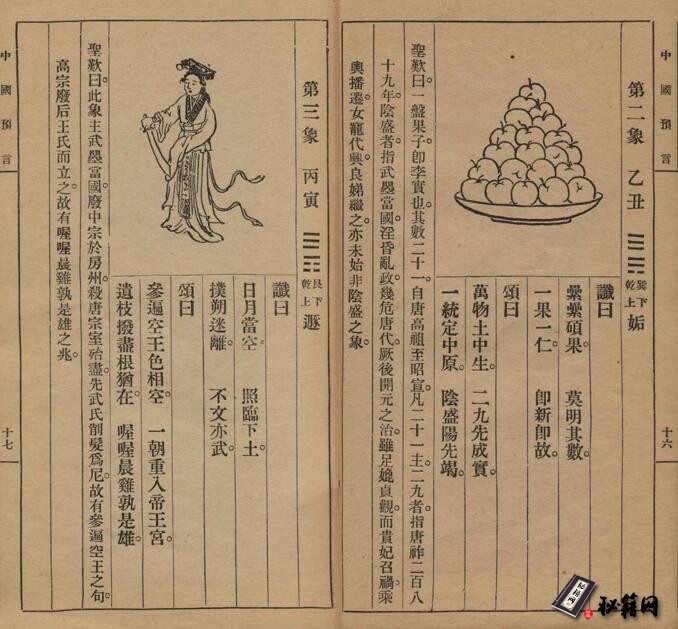 中國預言
十六
第二象 乙丑 ䷫ 巽下乾上 姤
讖曰
纍纍碩果 莫明其數。
一果一仁。 卽新卽故。
頌曰
萬物土中生。 二九先成實。
一統定中原。 陰盛陽先竭。
聖歎曰。一盤果子卽李實也。其數二十一。自唐高祖至昭宣。凡二十一主。二九者指唐祚二百八
十九年。陰盛者指武曌當國。淫昏亂政。幾危唐代。厥後開元之治。雖足媲貞觀。而貴妃召禍。乘
輿播遷。女寵代興。良娣繼之。亦未始非陰盛之象。
第三象 丙寅 ䷠ 艮下乾上 遯
讖曰
日月當空。 照臨下土。
撲朔迷離。 不文亦武。
頌曰
參遍空王色相空。 一朝重入帝王宮。
遺枝撥盡根猶在。 喔喔晨雞孰是雄。
聖歎曰。此象主武曌當國。廢中宗於房州。殺唐宗室殆盡。先武氏削髮爲尼。故有參遍空王之句。
高宗廢后王氏而立之。故有喔喔晨雞孰是雄之兆。
中國預言
十七
秘籍网
秘籍网